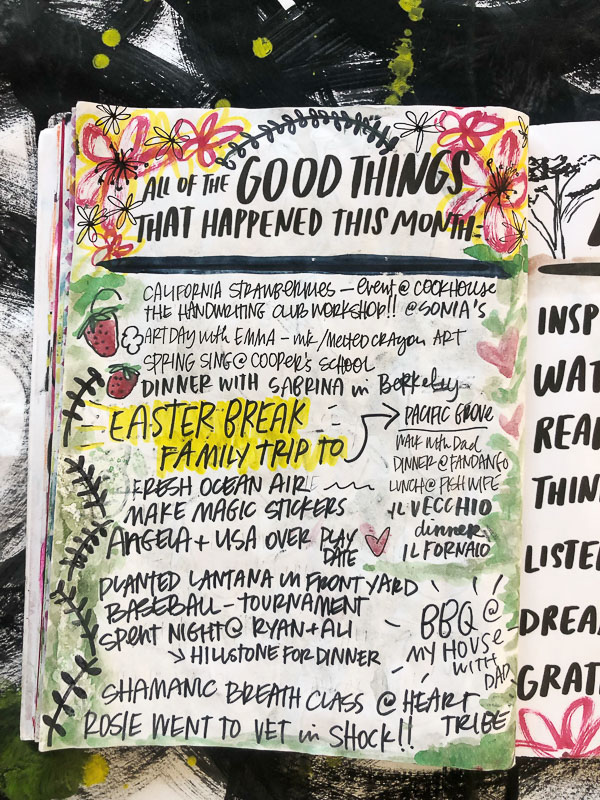 ALL OF THE GOOD THINGS
THAT HAPPENED THIS MONTH:
CALIFORNIA STRAWBERRIES — event @ COOKHOUSE
THE HANDWRITING CLUB WORKSHOP!! @ SONIA'S
ART DAY with EMMA - ink/melted crayon ART
SPRING SING @ COOPER'S SCHOOL
DINNER WITH SABRINA in Berkeley
EASTER BREAK
FAMILY TRIP TO
PACIFIC GROVE
WALK with Dad
DINNER @ FANDANGO
LUNCH @ FISHWIFE
IL VECCHIO
dinner
IL FORNAIO
FRESH OCEAN AIR
MAKE MAGIC STICKERS
ANGELA + LISA OVER PLAY
DATE
PLANTED LANTANA in FRONT YARD
BASEBALL - TOURNAMENT
Spent NIGHT @ RYAN + ALI
HILLSTONE FOR DINNER
BBQ @
MY HOUSE
WITH
DAD
SHAMANIC BREATH CLASS @ HEART
TRIBE
ROSIE WENT TO VET in SHOCK!!
INSP
WAT
REA
THIN
LISTE
DREA
GRAT